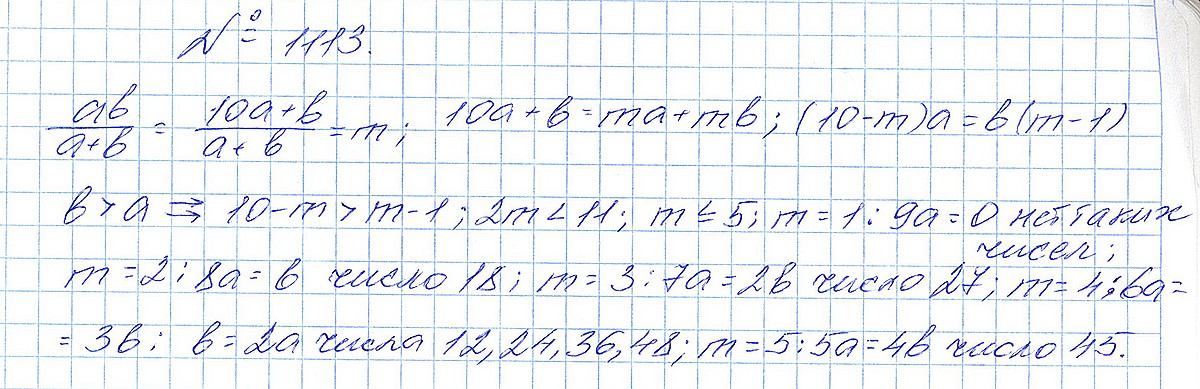 № 1113.
ab/(a+b) = (10a+b)/(a+b) = m; 10a+b=ma+mb; (10-m)a=b(m-1)
b>a ⇒ 10-m>m-1; 2m<11; m≤5; m=1: 9a=0 нет таких
чисел;
m=2: 8a=b число 18; m=3: 7a=2b число 27; m=4: 6a=
=3b; b=2a числа 12,24,36,48; m=5: 5a=4b число 45.